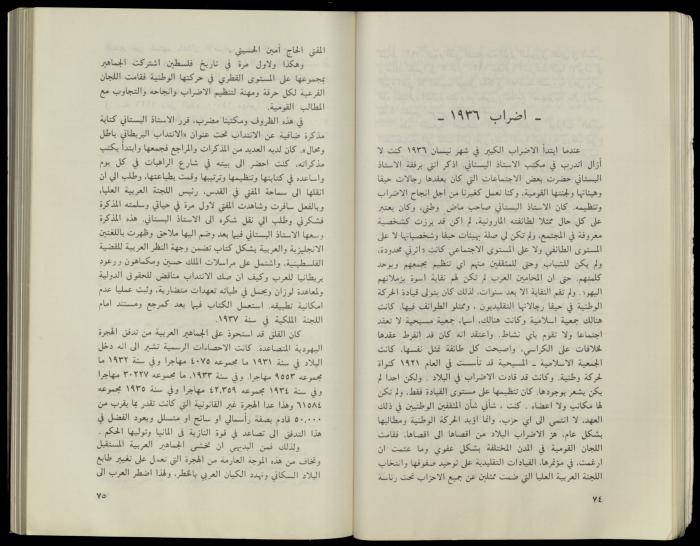 - اضراب ١٩٣٦ -
عندما ابتدأ الاضراب الكبير في شهر نيسان ١٩٣٦ كنت لا
أزال اتدرب في مكتب الاستاذ البستاني. اذكر انني برفقة الاستاذ
البستاني حضرت بعض الاجتماعات التي كان يعقدها رجالات حيفا
وهيئاتها ولجنتها القومية، وكنا نعمل كغيرنا من اجل انجاح الاضراب
وتنظيمه. كان الاستاذ البستاني صاحب ماض وطني، وكان يعتبر
على كل حال ممثلا لطائفته المارونية. لم اكن قد برزت كشخصية
معروفة في المجتمع، ولم يكن لي صلة بهيئات حيفا وشخصياتها لا على
المستوى الطائفي ولا على المستوى الاجتماعي كانت دائرتي محدودة،
ولم يكن للشباب وحتى للمثقفين منهم اي تنظيم يجمعهم ويوحد
كلمتهم. حتى ان المحامين العرب لم تكن لهم نقابة اسوة بزملائهم
اليهود. ولم تقم النقابة الا بعد سنوات، لذلك كان يتولى قيادة الحركة
الوطنية في حيفا رجالاتها التقليديون، وممثلو الطوائف فيها. كانت
هنالك جمعية اسلامية وكانت هنالك، اسما، جمعية مسيحية لا تعقد
اجتماعا ولا تقوم بأي نشاط. واعتقد انه كان قد انفرط عقدها
لخلافات على الكراسي، واصبحت كل طائفة تمثل نفسها. كانت
الجمعية الاسلامية - المسيحية قد تأسست في العام ١٩٢١ كنواة
لحركة وطنية. وكانت قد قادت الاضراب في البلاد. ولكن احدا لم
يكن يشعر بوجودها. كان تنظيمها على مستوى القيادة فقط، ولم تكن
لها مكاتب ولا اعضاء. كنت، شأني شأن المثقفين الوطنيين في ذلك
العهد، لا انتمي الى اي حزب، وانما اؤيد الحركة الوطنية ومطالبها
بشكل عام. هز الاضراب البلاد من اقصاها الى اقصاها. فقامت
اللجان القومية في المدن المختلفة بشكل عفوي وما عتمت ان
ارغمت، في مؤتمرها، القيادات التقليدية على توحيد صفوفها وانتخاب
اللجنة العربية العليا التي ضمت ممثلين عن جميع الاحزاب تحت رئاسة
٧٤
المفتي الحاج أمين الحسيني
وهكذا ولاول مرة في تاريخ فلسطين اشتركت الجماهير
بمجموعها على المستوى القطري في حركتها الوطنية فقامت اللجان
الفرعية لكل حرفة ومهنة لتنظيم الاضراب وانجاحه والتجاوب مع
المطالب القومية.
في هذه الظروف ومكتبنا مضرب، قرر الاستاذ البستاني كتابة
مذكرة ضافية عن الانتداب تحت عنوان «الانتداب البريطاني باطل
ومحال». كان لديه العديد من المذكرات والمراجع فجمعها وابتدأ يكتب
مذكراته. كنت احضر الى بيته في شارع الراهبات في كل يوم
واساعده في كتابتها وتنظيمها وترتيبها وقمت بطباعتها، وطلب الي ان
انقلها الى سماحة المفتي في القدس، رئيس اللجنة العربية العليا،
وبالفعل سافرت وشاهدت المفتي لاول مرة في حياتي وسلمته المذكرة
فشكرني وطلب الي نقل شكره الى الاستاذ البستاني. هذه المذكرة
وسعها الاستاذ البستاني فيما بعد وضم اليها ملاحق وظهرت باللغتين
الانجليزية والعربية بشكل كتاب تضمن وجهة النظر العربية للقضية
الفلسطينية، واشتمل على مراسلات الملك حسين ومكماهون ورعود
بريطانيا للعرب وكيف ان صك الانتداب مناقض للحقوق الدولية
ولمعاهدة لوزان ويحمل في طياته تعهدات متضاربة، وثبت عمليا عدم
امكانية تطبيقه. استعمل الكتاب فيما بعد كمرجع ومستند امام
اللجنة الملكية في سنة ١٩٣٧.
كان القلق قد استحوذ على الجماهير العربية من تدفق الهجرة
اليهودية المتصاعدة. كانت الاحصاءات الرسمية تشير الى انه دخل
البلاد في سنة ١٩٣١ ما مجموعه ٤٠٧٥ مهاجرا وفي سنة ١٩٣٢ ما
مجموعه ٩٥٥٣ مهاجرا. وفي سنة ١٩٣٣، ما مجموعه ٣٠٢٢٧ مهاجرا
وفي سنة ١٩٣٤ ما مجموعه ٤٢,٣٥٩ مهاجرا وفي سنة ١٩٣٥ ما مجموعه
٦١٥٨٤ وهذا عدا الهجرة غير القانونية التي كانت تقدر بما يقرب من
٥٠,٠٠٠ قادم بصفة رأسمالي او سائح او متسلل ويعود الفضل في
هذا التدفق الى تصاعد في قوة النازية في المانيا وتوليها الحكم.
ولذلك فمن البديهي ان تخشى الجماهير العربية المستقبل
وتخاف من هذه الموجة العارمة من الهجرة التي تعمل على تغيير طابع
البلاد السكاني وتهدد الكيان العربي بالخطر، ولهذا اضطر العرب الى
٧٥